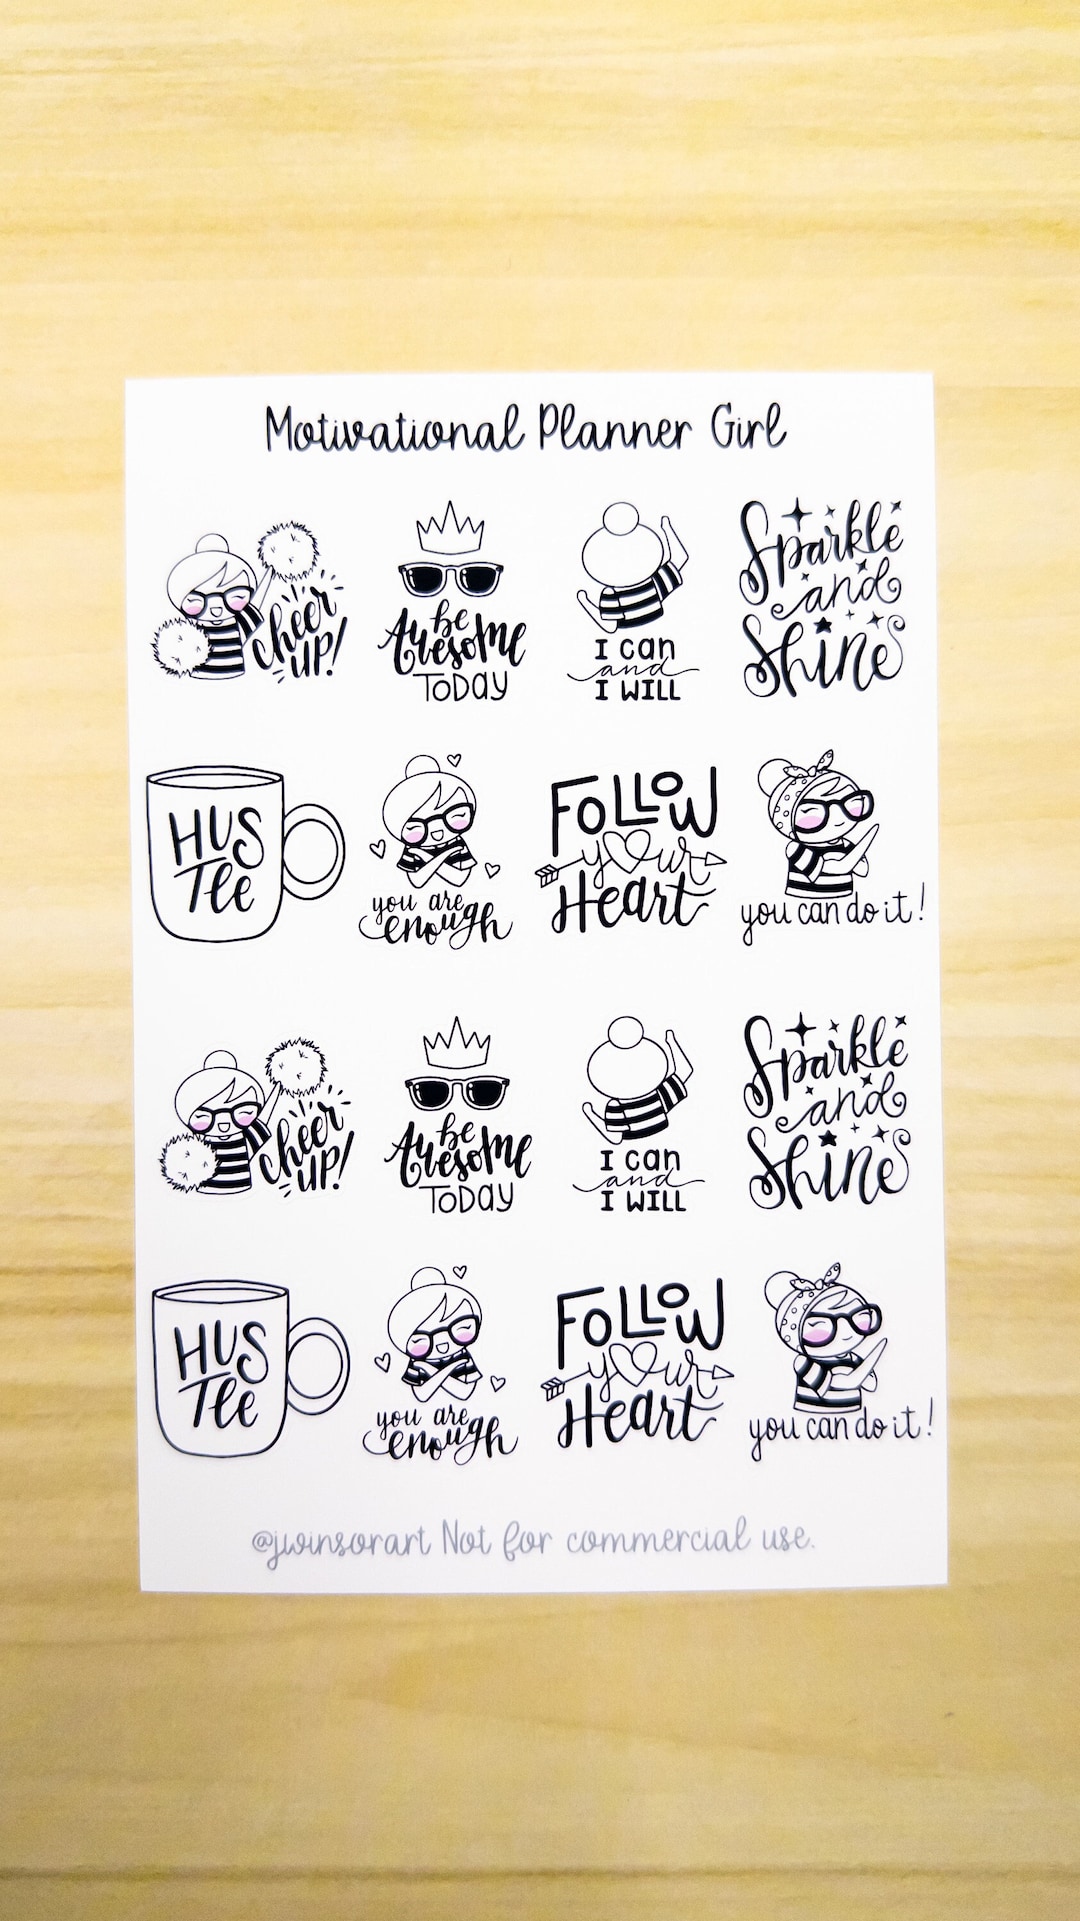 Motivational Planner Girl
cheer
UP!
be
Awesome
TODAY
I can
and
I WILL
Sparkle
and
Shine
HUS
TLE
you are
enough
FOLLOW
your
Heart
you can do it!
cheer
UP!
be
Awesome
TODAY
I can
and
I WILL
Sparkle
and
Shine
HUS
TLE
you are
enough
FOLLOW
your
Heart
you can do it!
@jwinsorart Not for commercial use.